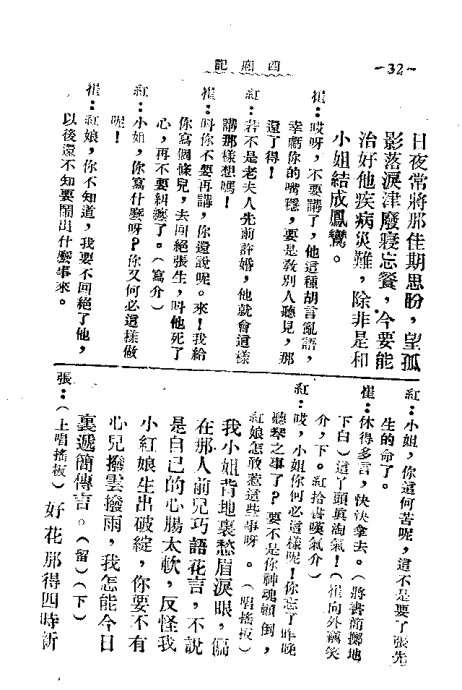 西廂記
-32-
日夜常將那佳期思盼，望孤
影落淚津廢寢忘餐，今要能
治好他疾病災難，除非是和
小姐結成鳳鸞。
崔：哎呀，不要講了，他這種胡言亂語，
幸虧你的嘴穩，要是教別人聽見，那
還了得！
紅：若不是老夫人先前許婚，他就會這樣
講那樣想嗎！
崔：叫你不要再講，你還說呢。來！我給
你寫個條兒，去回絕張生，叫他死了
心，再不要糾纏了。（寫介）
紅：小姐，你寫什麼呀？你又何必這樣做
呢！
崔：紅娘，你不知道，我要不回絕了他，
以後還不知要鬧出什麼事來。
紅：小姐，你這何苦呢，這不是要了張先
生的命了。
崔：休得多言，快快拿去。（將書簡擲地
下白）這丫頭眞淘氣！（崔向外竊笑
介，下。紅拾書嘆氣介）
紅：哎，小姐你何必這樣呢！你忘了昨晚
聽琴之事了？要不是你神魂顚倒，
紅娘怎敢惹這些事呀。（唱搖板）
我小姐背地裏愁眉淚眼，偏
在那人前兒巧語花言，不說
是自己的心腸太軟，反怪我
小紅娘生出破綻，你要不有
心兒撥雲撥雨，我怎能今日
裏遞簡傳言。（留）（下）
張：（上唱搖板）好花那得四時新